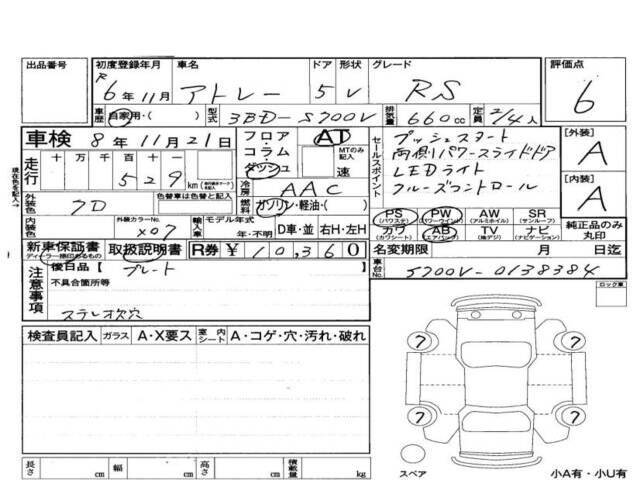 出品番号 初度登録年月 車名 ドア 形状 グレード 評価点
R 6年11月 アトレー 5 V RS 6
車歴 自家用・( ) 型式 3BD-S700V 排気量 660cc 定員 2/4人
車検 8年11月21日 フロア コラム ダッシュ AT MTのみ記入 速
走行 十万千百十一 529 km
セールスポイント プッシュスタート
両側パワースライドドア
LEDライト
クルーズコントロール
[外装] A
[内装] A
冷房 AAC
現在色を記入→ 外装色 クロ 色替車は色替と記入 燃料 ガソリン・軽油・( )
内装色 外装カラーNo. X07 輸入車 モデル年式 年・不明 D車・並 右H・左H
PS (パワステ) PW (パワーウインド) AW (アルミホイル) SR (サンルーフ)
カワ (カワシート) AB (エアバッグ) TV ナビ (ナビゲーション) 純正品のみ丸印
新車保証書 取扱説明書 R券 ¥10,360 名変期限 月 日迄
車台No. S700V-0138384
注意事項 後日品【 プレート 】
不具合箇所等
ステレオ次穴
ロック車
検査員記入 ガラス A・X要ス 室内シート A・コゲ・穴・汚れ・破れ
7 7
7 7
スペア
長さ cm 幅 cm 高さ cm 積載量 kg
小A有・小U有